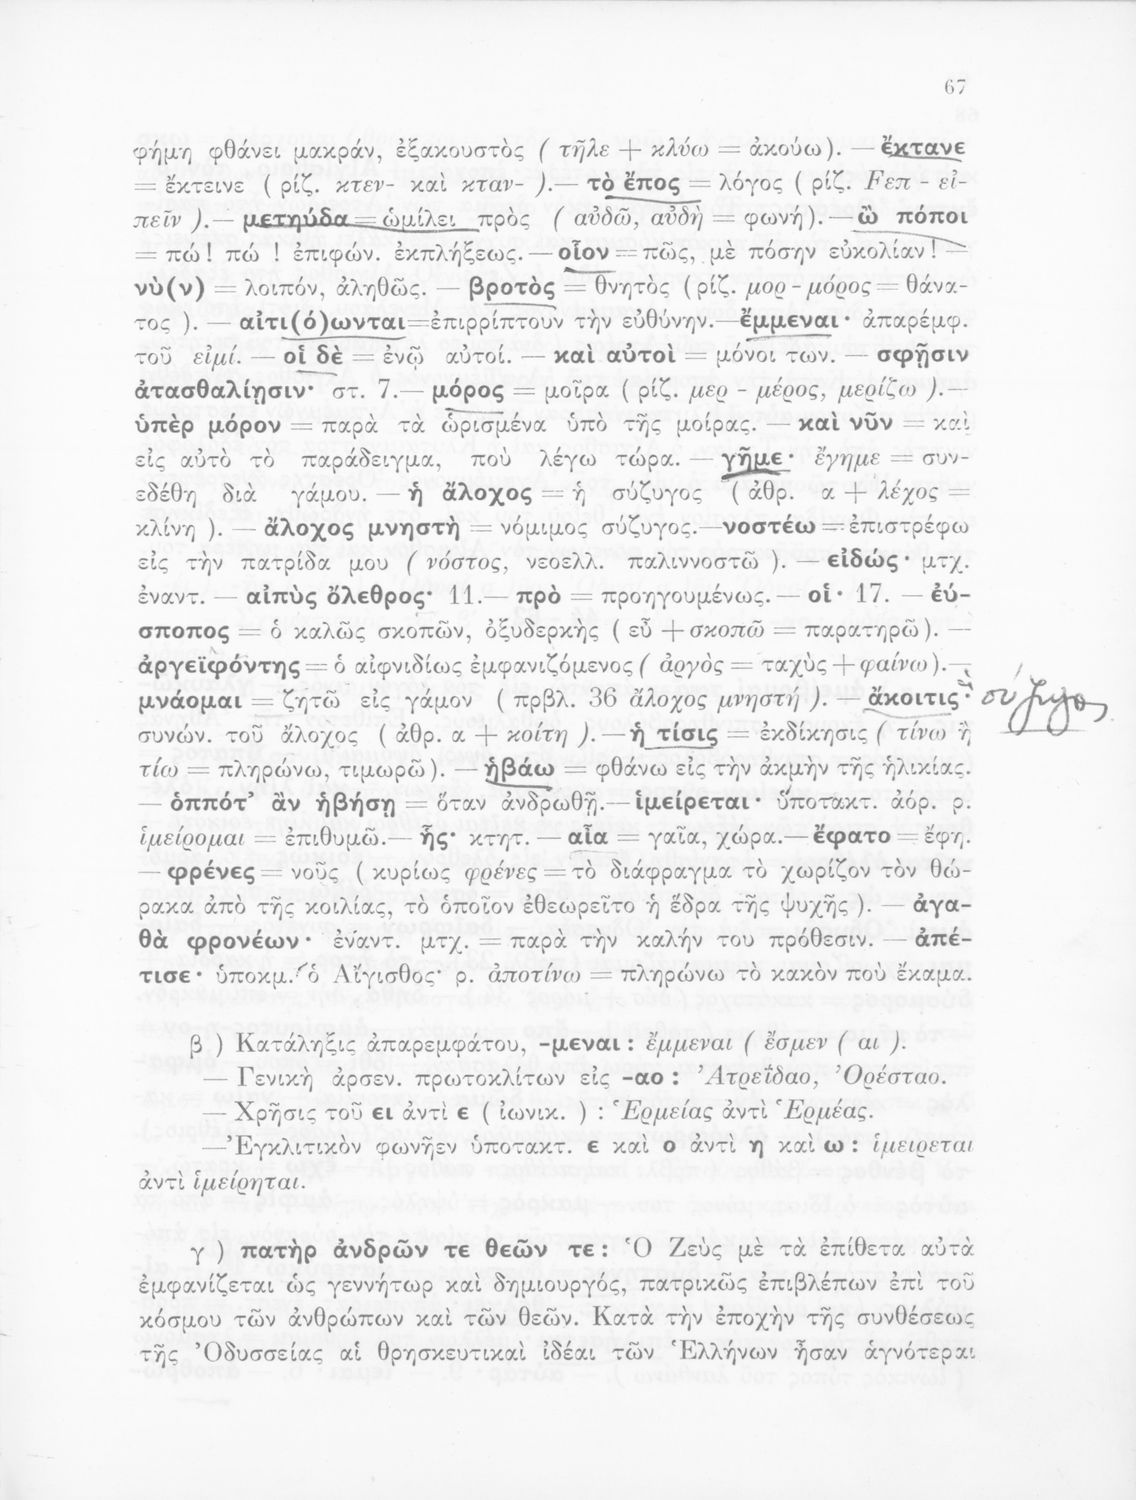 67
φήμη φθάνει μακράν, ἐξακουστὸς ( τῆλε + κλύω = ἀκούω). — ἔκτανε
= ἔκτεινε ( ρίζ. κτεν- καὶ κταν- ).— τὸ ἔπος = λόγος ( ρίζ. Fεπ - εἰ-
πεῖν ).— μετηύδα = ὡμίλει πρὸς ( αὐδῶ, αὐδὴ = φωνή). — ὢ πόποι
= πώ! πώ ! ἐπιφών. ἐκπλήξεως. — οἷον = πῶς, μὲ πόσην εὐκολίαν! —
νὺ(ν) = λοιπόν, ἀληθῶς. — βροτὸς = θνητὸς (ρίζ. μορ - μόρος = θάνα-
τος ). — αἰτι(ό)ωνται=ἐπιρρίπτουν τὴν εὐθύνην.—ἔμμεναι· ἀπαρέμφ.
τοῦ εἰμί. — οἱ δὲ = ἐνῷ αὐτοί. — καὶ αὐτοὶ = μόνοι των. — σφῇσιν
ἀτασθαλίῃσιν· στ. 7.— μόρος = μοῖρα ( ρίζ. μερ - μέρος, μερίζω ).—
ὑπὲρ μόρον = παρὰ τὰ ὡρισμένα ὑπὸ τῆς μοίρας. — καὶ νῦν = καὶ
εἰς αὐτὸ τὸ παράδειγμα, ποὺ λέγω τώρα. — γῆμε· ἔγημε = συν-
εδέθη διὰ γάμου. — ἡ ἄλοχος = ἡ σύζυγος ( ἀθρ. α + λέχος =
κλίνη ). — ἄλοχος μνηστὴ = νόμιμος σύζυγος.—νοστέω = ἐπιστρέφω
εἰς τὴν πατρίδα μου ( νόστος, νεοελλ. παλιννοστῶ ). — εἰδώς· μτχ.
ἐναντ. — αἰπὺς ὄλεθρος· 11.— πρὸ = προηγουμένως. — οἱ· 17. — ἐύ-
σποπος = ὁ καλῶς σκοπῶν, ὀξυδερκὴς ( εὖ + σκοπῶ = παρατηρῶ). —
ἀργεϊφόντης = ὁ αἰφνιδίως ἐμφανιζόμενος ( ἀργὸς = ταχὺς + φαίνω).—
μνάομαι = ζητῶ εἰς γάμον ( πρβλ. 36 ἄλοχος μνηστή ). — ἄκοιτις· σύζυγος
συνών. τοῦ ἄλοχος ( ἀθρ. α + κοίτη ). — ἡ τίσις = ἐκδίκησις ( τίνω ἢ
τίω = πληρώνω, τιμωρῶ). — ἡβάω = φθάνω εἰς τὴν ἀκμὴν τῆς ἡλικίας.
— ὁππότ' ἂν ἡβήσῃ = ὅταν ἀνδρωθῇ.— ἱμείρεται· ὑποτακτ. ἀόρ. ρ.
ἱμείρομαι = ἐπιθυμῶ.— ἧς· κτητ. — αἶα = γαῖα, χώρα.— ἔφατο = ἔφη.
— φρένες = νοῦς ( κυρίως φρένες = τὸ διάφραγμα τὸ χωρίζον τὸν θώ-
ρακα ἀπὸ τῆς κοιλίας, τὸ ὁποῖον ἐθεωρεῖτο ἡ ἕδρα τῆς ψυχῆς ). — ἀγα-
θὰ φρονέων· ἐναντ. μτχ. = παρὰ τὴν καλήν του πρόθεσιν. — ἀπέ-
τισε· ὑποκμ. ὁ Αἴγισθος· ρ. ἀποτίνω = πληρώνω τὸ κακὸν ποὺ ἔκαμα.
β ) Κατάληξις ἀπαρεμφάτου, -μεναι : ἔμμεναι ( ἔσμεν ( αι ).
— Γενικὴ ἀρσεν. πρωτοκλίτων εἰς -αο : Ἀτρεΐδαο, Ὀρέσταο.
— Χρῆσις τοῦ ει ἀντὶ ε ( ἰωνικ. ) : Ἑρμείας ἀντὶ Ἑρμέας.
— Ἐγκλιτικὸν φωνῆεν ὑποτακτ. ε καὶ ο ἀντὶ η καὶ ω : ἱμείρεται
ἀντὶ ἱμείρηται.
γ ) πατὴρ ἀνδρῶν τε θεῶν τε : Ὁ Ζεὺς μὲ τὰ ἐπίθετα αὐτὰ
ἐμφανίζεται ὡς γεννήτωρ καὶ δημιουργός, πατρικῶς ἐπιβλέπων ἐπὶ τοῦ
κόσμου τῶν ἀνθρώπων καὶ τῶν θεῶν. Κατὰ τὴν ἐποχὴν τῆς συνθέσεως
τῆς Ὀδυσσείας αἱ θρησκευτικαὶ ἰδέαι τῶν Ἑλλήνων ἦσαν ἁγνότεραι